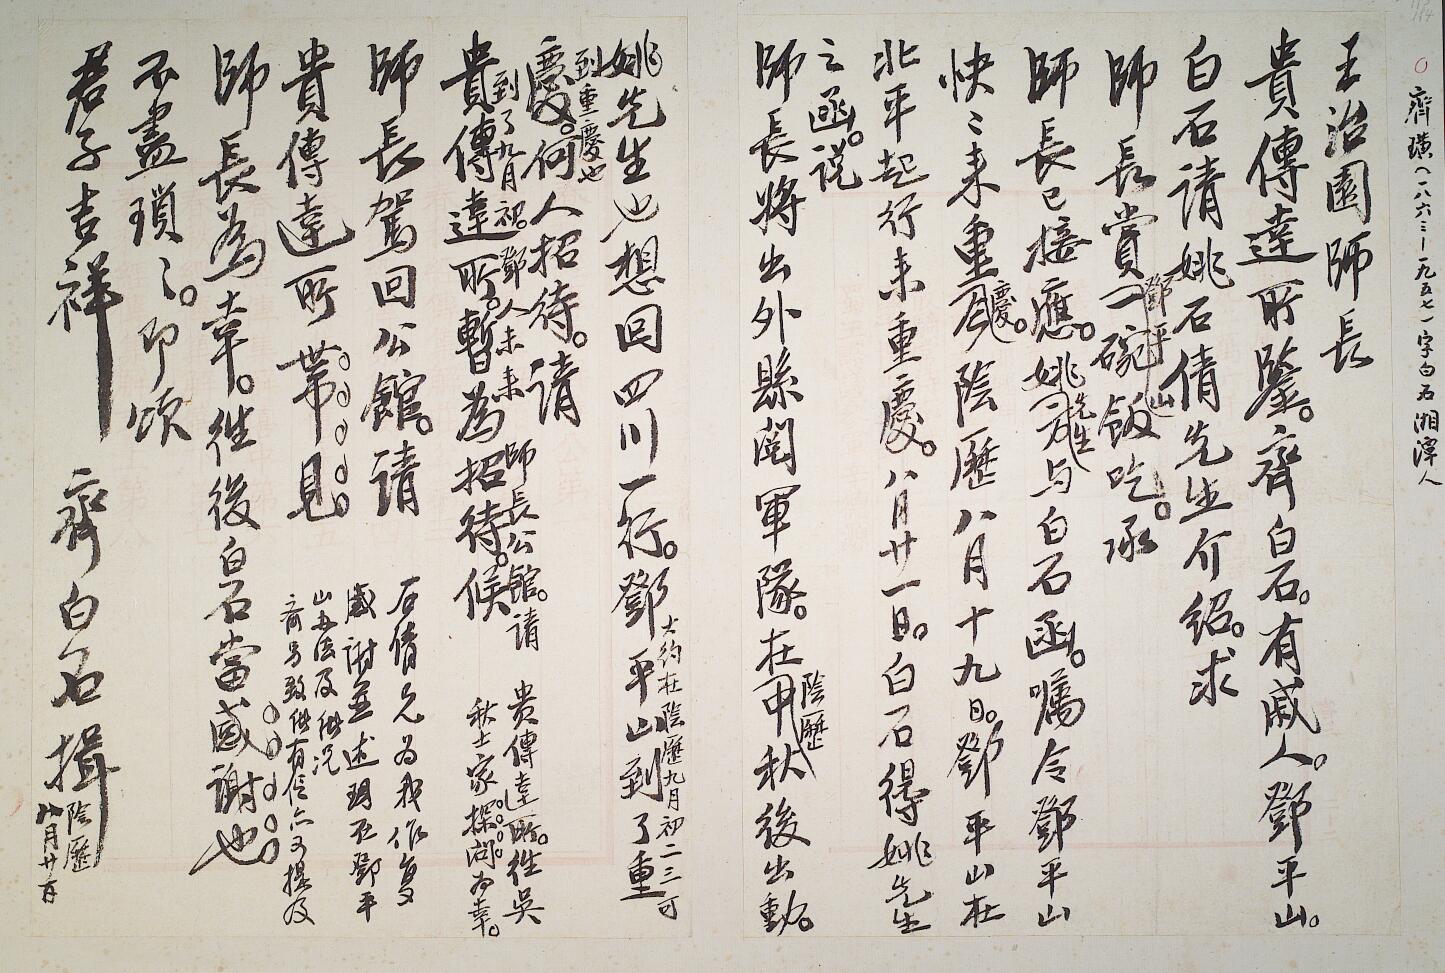 齊璜(一八六三—一九五七)字白石 湘潭人
王治園師長
貴傳達所鑒。齊白石。有戚人。鄧平山。
白石請姚石倩先生介紹。求
師長賞鄧平山一碗飯吃。承
師長已接應。姚先生与白石函。囑令鄧平山
快〻來重慶。陰歷八月十九日。鄧平山在
北平起行來重慶。八月廿一日。白石得姚先生
之函。说
師長將出外縣閱軍隊。在陰歷中秋後出動。
姚先生也想回四川一行。鄧平山到了重
大約在陰歷九月初二三可
到重慶也
慶。何人招待。請
到了九月初。鄧人未來
貴傳達所。暫為招待。候
師長公館。請
貴傳達所。往吳
秋士家探問為幸。
師長駕回公館。請
貴傳達所帶見
師長為幸。往後白石當感謝也
石倩兄为我作复
感谢並述明不鄧平
山
不盡瑣〻。即頌
君子吉祥 齊白石揖
陰歷
八月廿二日